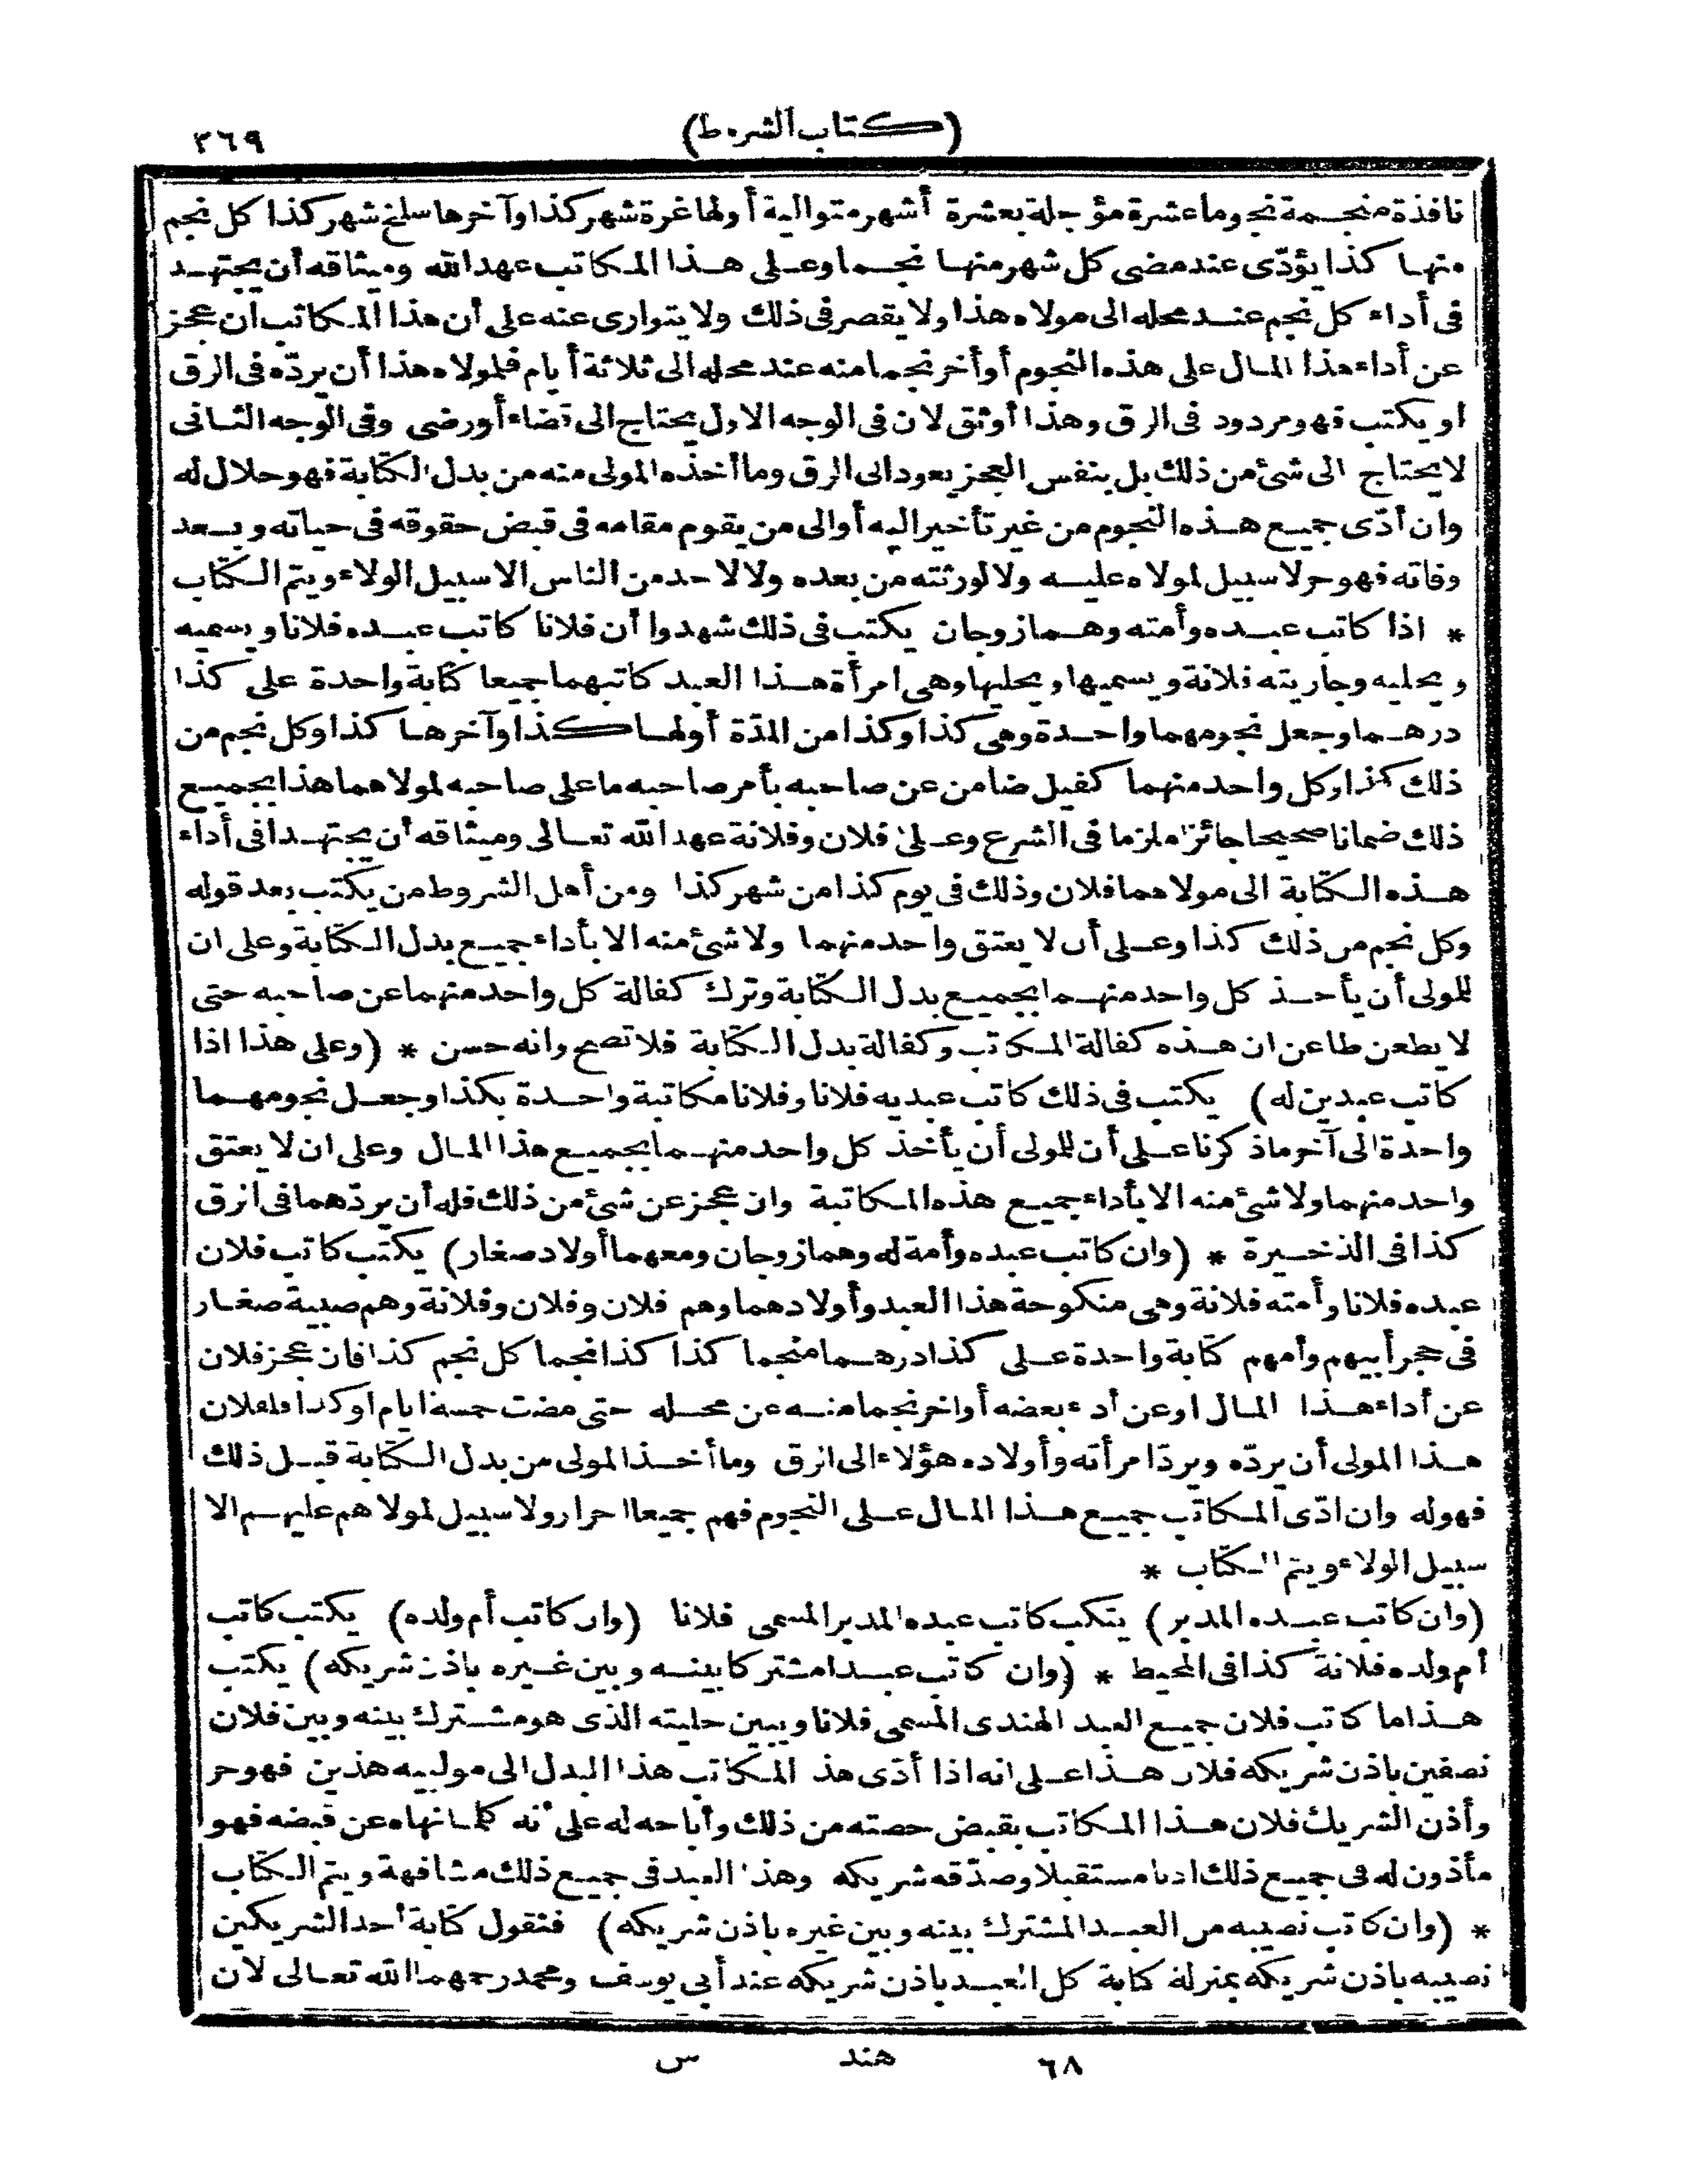 (كتاب الشروط)
٣٦٩
نافذة منجمة نجوما عشرة مؤجلة بعشرة أشهر متوالية أولها غرة شهر كذا وآخرها سلخ شهر كذا كل نجم
منها كذا يؤدّى عند مضى كل شهر منها نجما وعلى هذا المكاتب عهد الله وميثاقه أن يجتهد
فى أداء كل نجم عند محله الى مولاه هذا ولا يقصر فى ذلك ولا يتوارى عنه على أن هذا المكاتب ان عجز
عن أداء هذا المال على هذه النجوم أو أخر نجما منه عند محله الى ثلاثة أيام فلمولاه هذا أن يردّه فى الرق
او يكتب فهو مردود فى الرق وهذا أوثق لان فى الوجه الاول يحتاج الى قضاء أو رضى وفى الوجه الثانى
لا يحتاج الى شئ من ذلك بل بنفس العجز يعود الى الرق وما أخذه المولى منه من بدل الكتابة فهو حلال له
وان أدّى جميع هذه النجوم من غير تأخير اليه أو الى من يقوم مقامه فى قبض حقوقه فى حياته وبعد
وفاته فهو حر لا سبيل لمولاه عليه ولا لورثته من بعده ولا لاحد من الناس الا سبيل الولاء ويتم الكتاب
* اذا كاتب عبده وأمته وهما زوجان يكتب فى ذلك شهدوا أن فلانا كاتب عبده فلانا ويسميه
ويحليه وجاريته فلانة ويسميها ويحليها وهى امرأة هذا العبد كاتبهما جميعا كتابة واحدة على كذا
درهما وجعل نجومهما واحدة وهى كذا وكذا من المدّة أولها كذا وآخرها كذا وكل نجم من
ذلك كذا وكل واحد منهما كفيل ضامن عن صاحبه بأمر صاحبه ما على صاحبه لمولاهما هذا بجميع
ذلك ضمانا صحيحا جائزا ملزما فى الشرع وعلى فلان وفلانة عهد الله تعالى وميثاقه أن يجتهدا فى أداء
هذه الكتابة الى مولاهما فلان وذلك فى يوم كذا من شهر كذا ومن أهل الشروط من يكتب بعد قوله
وكل نجم من ذلك كذا وعلى أن لا يعتق واحد منهما ولا شئ منه الا بأداء جميع بدل الكتابة وعلى ان
للمولى أن يأخذ كل واحد منهما بجميع بدل الكتابة وترك كفالة كل واحد منهما عن صاحبه حتى
لا يطعن طاعن ان هذه كفالة المكاتب وكفالة بدل الكتابة فلا تصح وانه حسن * (وعلى هذا اذا
كاتب عبدين له) يكتب فى ذلك كاتب عبديه فلانا وفلانا مكاتبة واحدة بكذا وجعل نجومهما
واحدة الى آخر ما ذكرنا على أن للمولى أن يأخذ كل واحد منهما بجميع هذا المال وعلى ان لا يعتق
واحد منهما ولا شئ منه الا بأداء جميع هذه المكاتبة وان عجز عن شئ من ذلك فله أن يردّهما فى الرق
كذا فى الذخيرة * (وان كاتب عبده وأمة له وهما زوجان ومعهما أولاد صغار) يكتب كاتب فلان
عبده فلانا وأمته فلانة وهى منكوحة هذا العبد وأولادهما وهم فلان وفلان وفلانة وهم صبية صغار
فى حجر أبيهم وأمهم كتابة واحدة على كذا درهما منجما كذا كذا نجما كل نجم كذا فان عجز فلان
عن أداء هذا المال او عن أداء بعضه أو اخر نجما منه عن محله حتى مضت خمسة ايام او كذا فلفلان
هذا المولى أن يردّه ويردّ امرأته وأولاده هؤلاء الى الرق وما أخذ المولى من بدل الكتابة قبل ذلك
فهو له وان ادّى المكاتب جميع هذا المال على النجوم فهم جميعا احرار ولا سبيل لمولاهم عليهم الا
سبيل الولاء ويتم الكتاب *
(وان كاتب عبده المدبر) يتكب كاتب عبده المدبر المسمى فلانا (وان كاتب أم ولده) يكتب كاتب
أم ولده فلانة كذا فى المحيط * (وان كاتب عبدا مشتركا بينه وبين غيره باذن شريكه) يكتب
هذا ما كاتب فلان جميع العبد الهندى المسمى فلانا ويبين حليته الذى هو مشترك بينه وبين فلان
نصفين باذن شريكه فلان هذا على انه اذا أدّى هذا المكاتب هذا البدل الى مولييه هذين فهو حر
وأذن الشريك فلان هذا المكاتب بقبض حصته من ذلك وأباحه له على أنه كلما نهاه عن قبضه فهو
مأذون له فى جميع ذلك اذنا مستقبلا وصدّقه شريكه وهذا العبد فى جميع ذلك مشافهة ويتم الكتاب
* (وان كاتب نصيبه من العبد المشترك بينه وبين غيره باذن شريكه) فنقول كتابة أحد الشريكين
نصيبه باذن شريكه بمنزلة كتابة كل العبد باذن شريكه عند أبي يوسف ومحمد رحمهما الله تعالى لان
٦٨ هند س